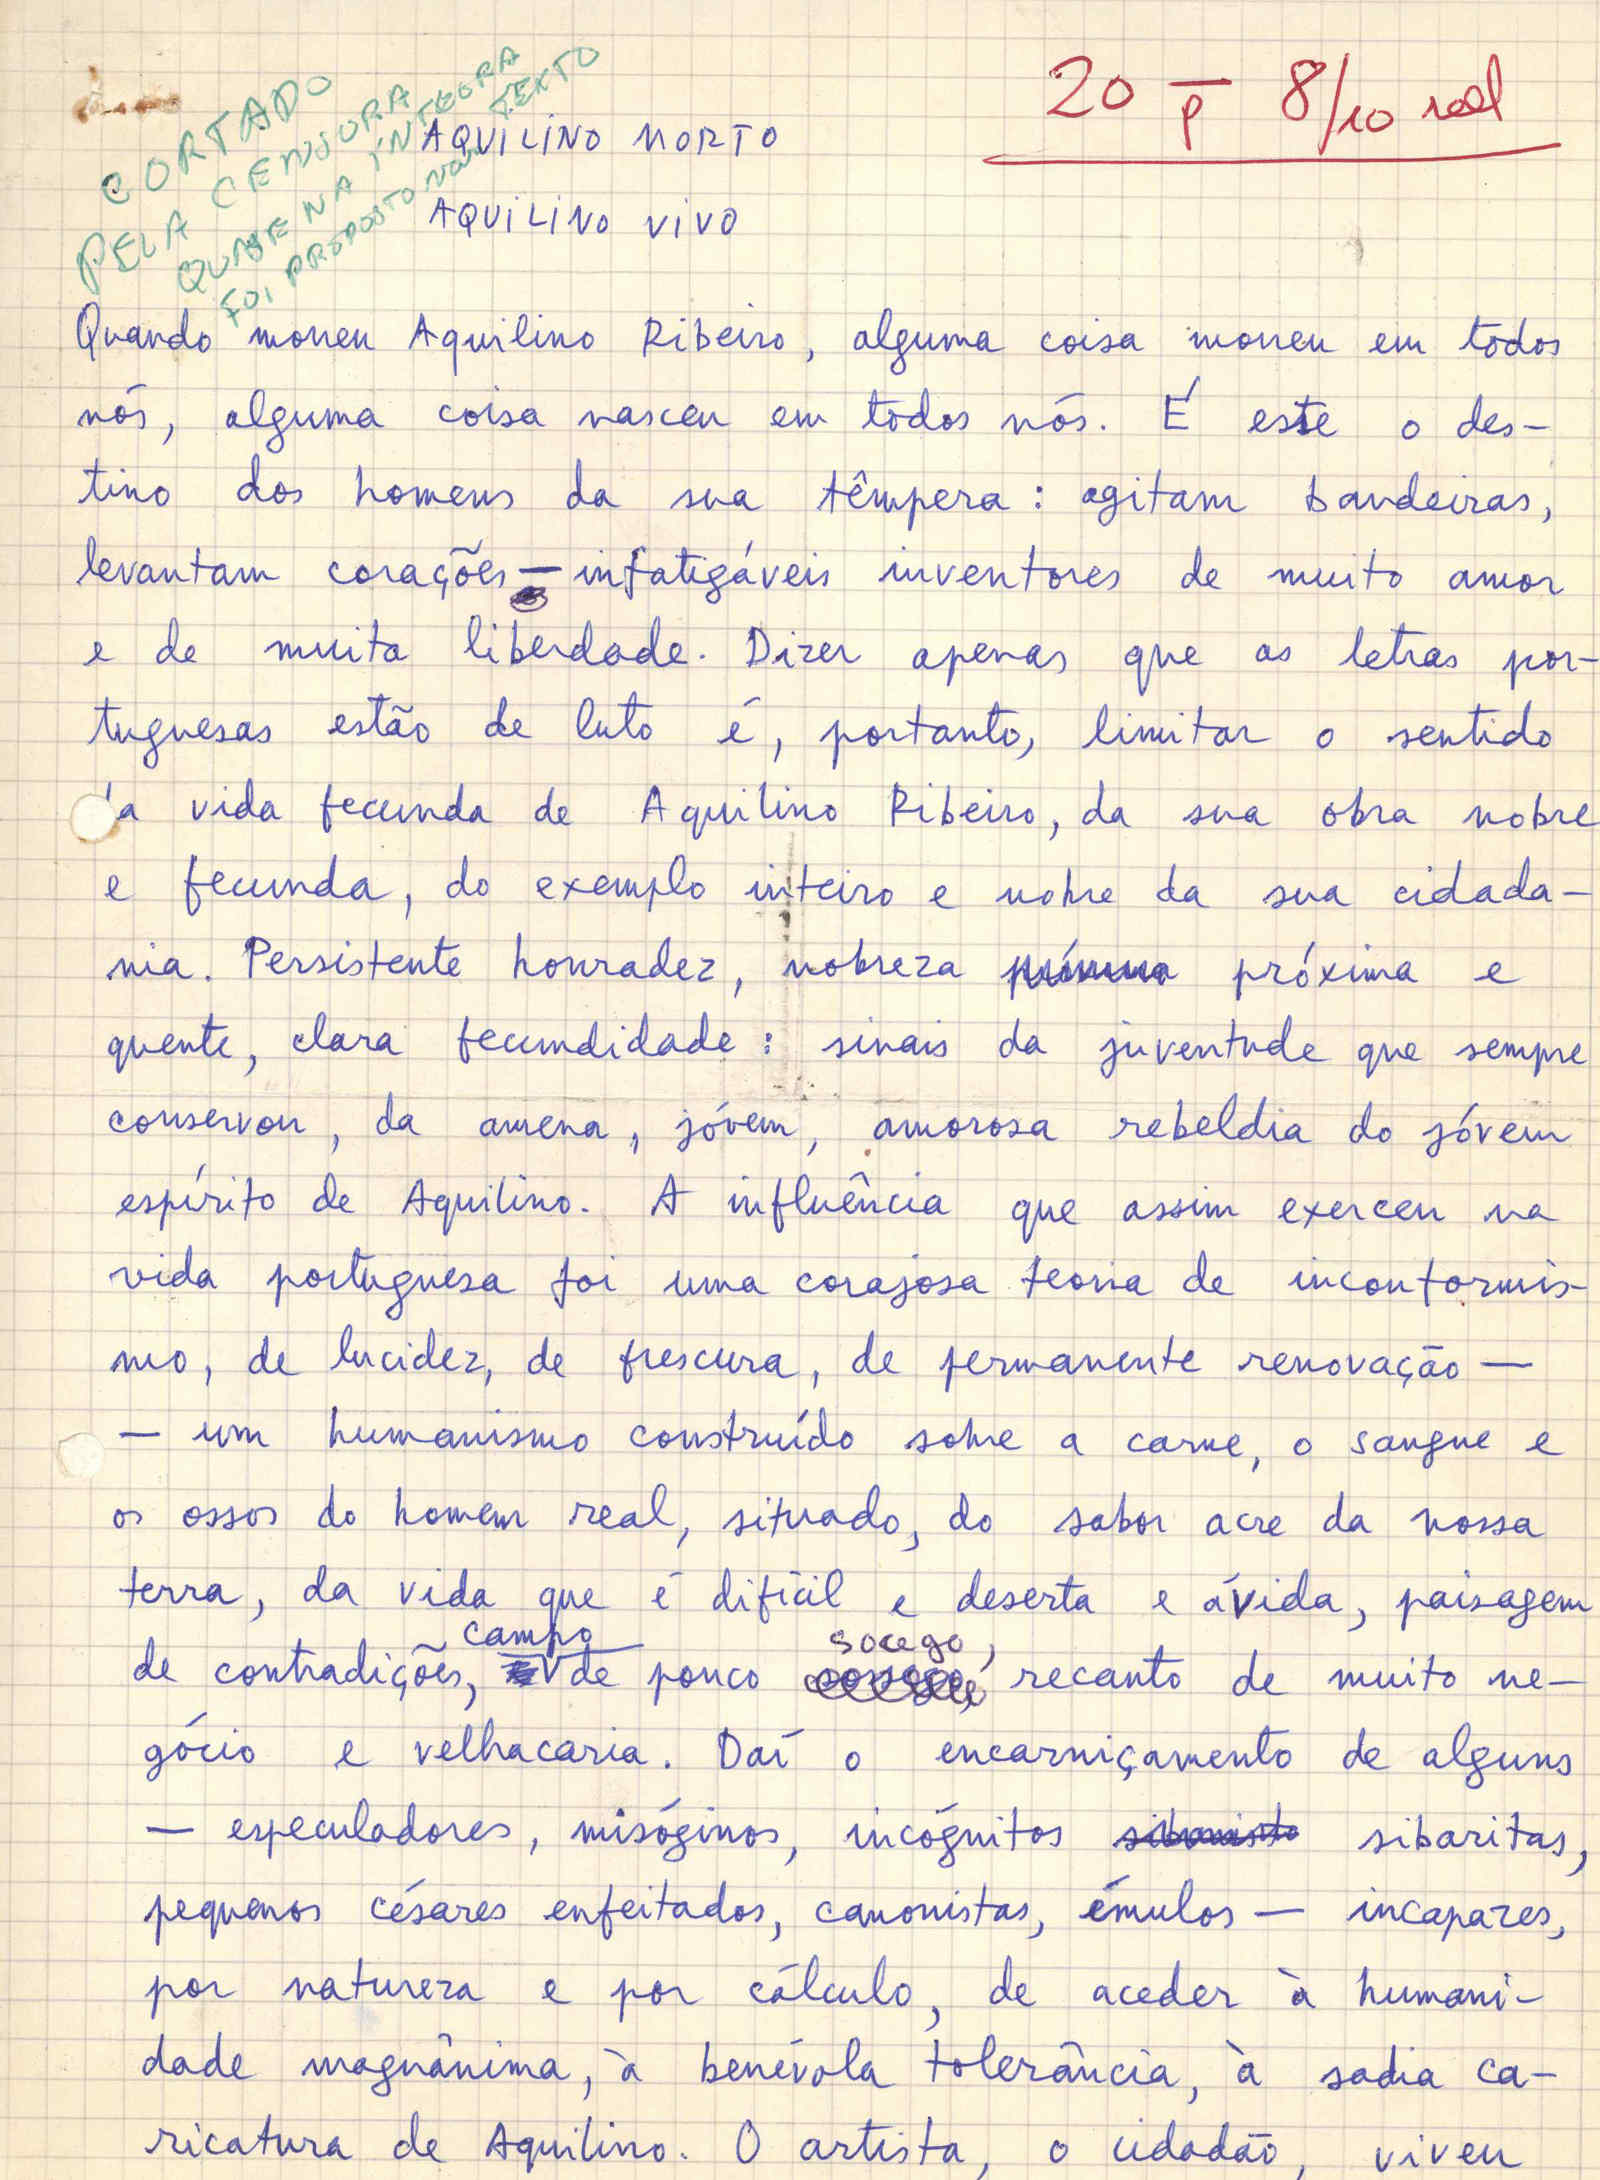 CORTADO
PELA CENSURA
QUASE NA ÍNTEGRA
FOI PROPOSTO NOVO TEXTO
20 p 8/10 real
AQUILINO MORTO
AQUILINO VIVO
Quando morreu Aquilino Ribeiro, alguma coisa morreu em todos
nós, alguma coisa nasceu em todos nós. É este o des-
tino dos homens da sua têmpera: agitam bandeiras,
levantam corações — infatigáveis inventores de muito amor
e de muita liberdade. Dizer apenas que as letras por-
tuguesas estão de luto é, portanto, limitar o sentido
da vida fecunda de Aquilino Ribeiro, da sua obra nobre
e fecunda, do exemplo inteiro e nobre da sua cidada-
nia. Persistente honradez, nobreza próxima e
quente, clara fecundidade: sinais da juventude que sempre
conservou, da amena, jóvem, amorosa rebeldia do jóvem
espírito de Aquilino. A influência que assim exerceu na
vida portuguesa foi uma corajosa teoria de inconformis-
mo, de lucidez, de frescura, de permanente renovação —
— um humanismo construído sobre a carne, o sangue e
os ossos do homem real, situado, do sabor acre da nossa
terra, da vida que é difícil e deserta e ávida, paisagem
de contradições, campo de pouco socego, recanto de muito ne-
gócio e velhacaria. Daí o encarniçamento de alguns
— especuladores, misóginos, incógnitos sibaritas,
pequenos césares enfeitados, canonistas, émulos — incapazes,
por natureza e por cálculo, de aceder à humani-
dade magnânima, à benévola tolerância, à sadia ca-
ricatura de Aquilino. O artista, o cidadão, viveu